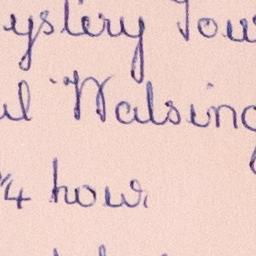 ystery Tou
ul Walsing
¼ hour